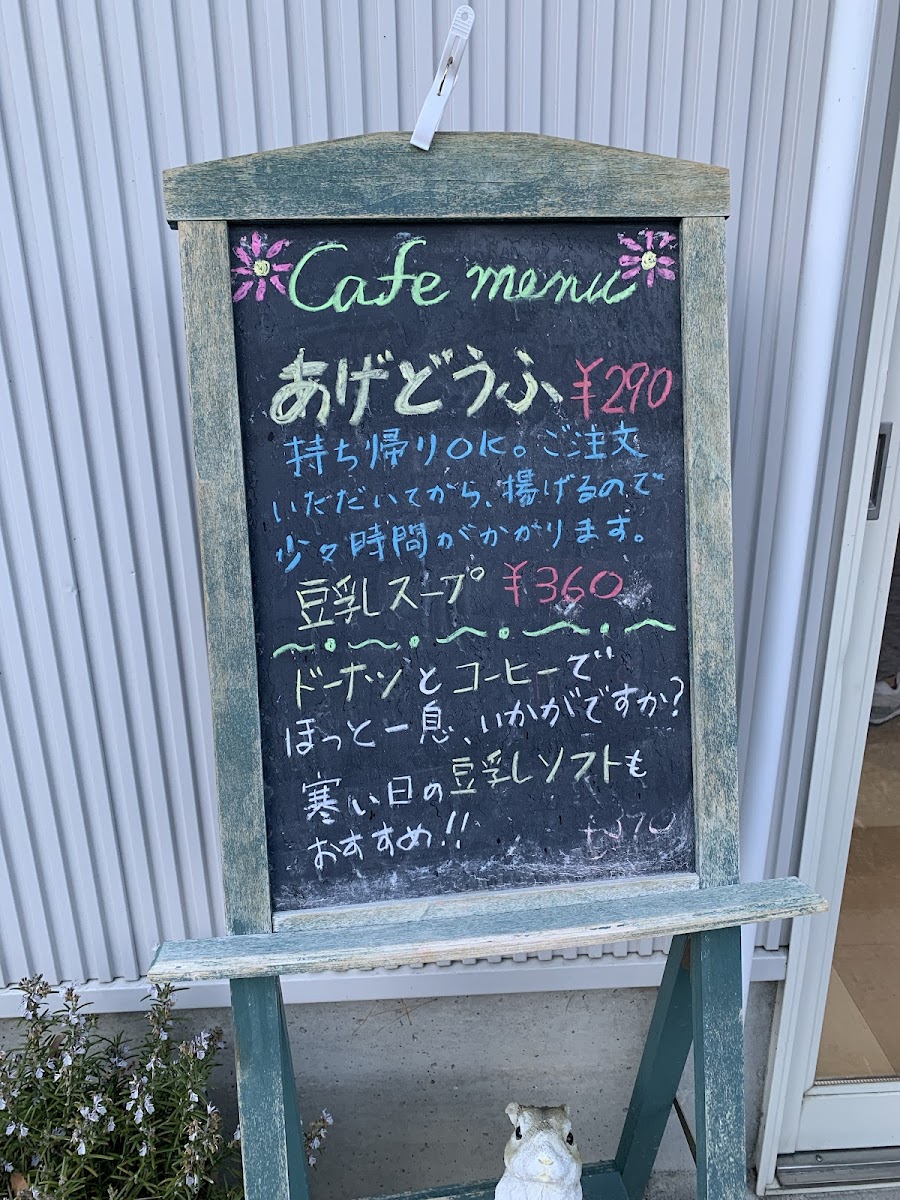 Cafe menu
あげどうふ ¥290
持ち帰りOK。ご注文
いただいてから、揚げるので
少々時間がかかります。
豆乳スープ ¥360
ドーナツとコーヒーで
ほっと一息、いかがですか?
寒い日の豆乳ソフトも
おすすめ!!